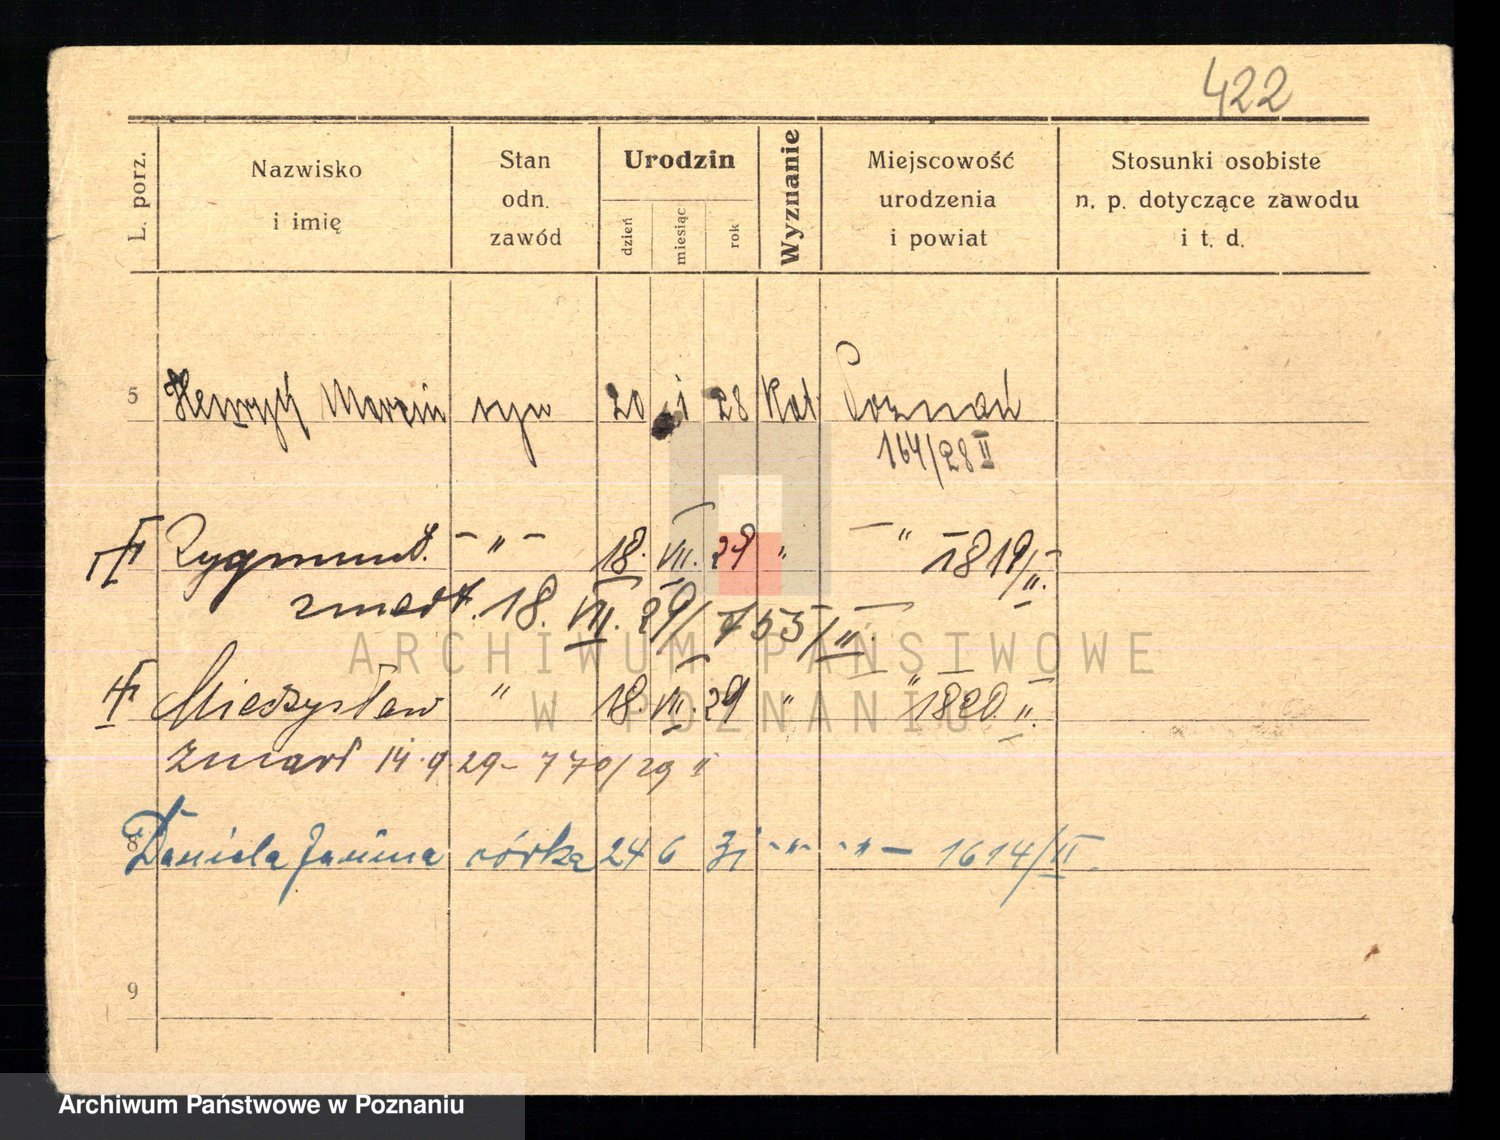 422
L. porz.
Nazwisko
i imię
Stan
odn.
zawód
Urodzin
dzień
miesiąc
rok
Wyznanie
Miejscowość
urodzenia
i powiat
Stosunki osobiste
n. p. dotyczące zawodu
i t. d.
5 Henryk Marcin syn 20 i 28 Kat. Poznań
164/28 II
Zygmunt. - " - 18. VII. 29 " - " 1819/II.
zmarł. 18. VII. 29/ 753/II.
Mieczysław " 18. VII. 29 " " 1820. II.
zmarł 14.9.29 - 770/29 II
8 Daniela Janina córka 24 6 31 -"- -"- 1614/II.
9
ARCHIWUM PAŃSTWOWE
W POZNANIU
Archiwum Państwowe w Poznaniu